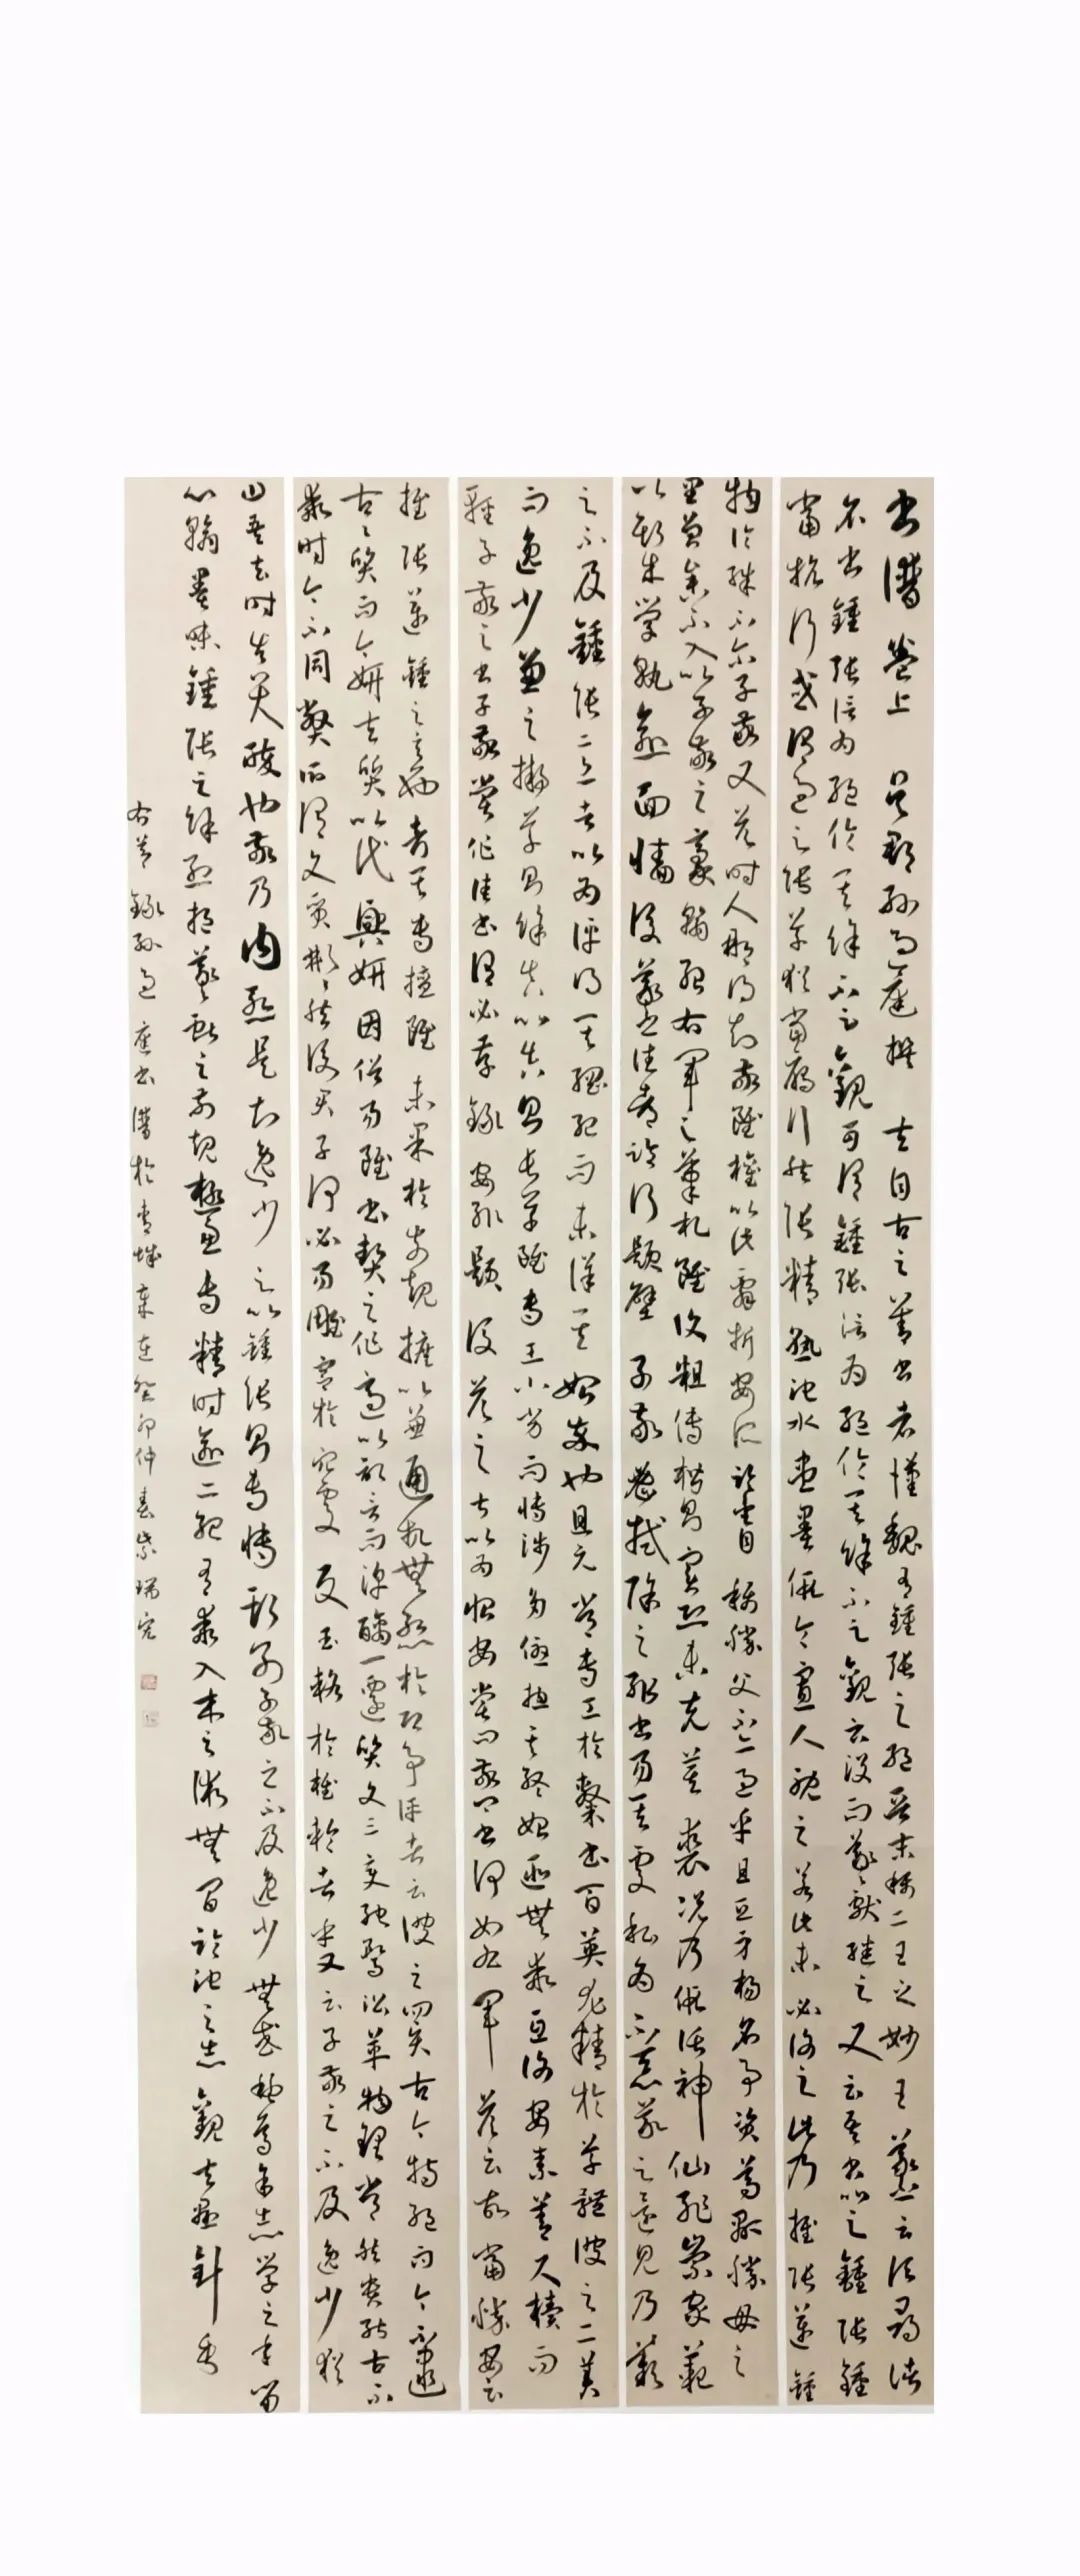 書譜卷上 吳郡孫過庭撰 夫自古之善書者漢魏有鍾張之絕晉末稱二王之妙王羲之云頃尋諸
名書鍾張信為絕倫其餘不足觀可謂鍾張信為絕倫其餘不足觀云沒而羲獻繼之又云吾書比之鍾張鍾
當抗行或謂過之張草猶當雁行然張精熟池水盡墨假令寡人耽之若此未必謝之此乃推張邁鍾
物論殊不尔子敬又答時人那得知敬雖權以此辭折安所鑒自稱勝父不亦過乎且立身揚名事資尊顯勝母之
里曾參不入以子敬之豪翰紹右軍之筆札雖復粗傳楷則實恐未克箕裘況乃假託神仙恥崇家範
以斯成學孰愈面牆後羲之往都臨行題壁子敬密拭除之輒書易其處私為不惡羲之還見乃歎
之不及鍾張意者以為評得其綱紀而未詳其始卒也且元常專工於隸書百英尤精於草體彼之二美
而逸少兼之擬草則餘真比真則長草雖專工小劣而博涉多優揔其終始匪無乖互謝安素善尺牘而
輕子敬之書子敬嘗作佳書謂必存錄安輒題後答之甚以為恨安嘗問敬卿書何如右軍答云故當勝安云
推張邁鍾之意也考其專擅雖未果於前規摭以兼通故無慙於即事評者云彼之四賢古今特絕而今不逮
古古質而今妍夫質以代興妍因俗易雖書契之作適以記言而淳醨一遷質文三變馳騖沿革物理常然貴能古不
乖時今不同弊所謂文質彬彬然後君子何必易雕宮於穴處反玉輅於椎輪者乎又云子敬之不及逸少猶
曰吾去時真大醉也敬乃內慙是知逸少之比鍾張則專博斯別子敬之不及逸少無或疑焉余志學之年留
心翰墨味鍾張之餘烈挹羲獻之前規極慮專精時逾二紀有乖入木之術無間臨池之志觀夫懸針垂
右節錄孫過庭書譜於青城 癸卯仲春紫瑞